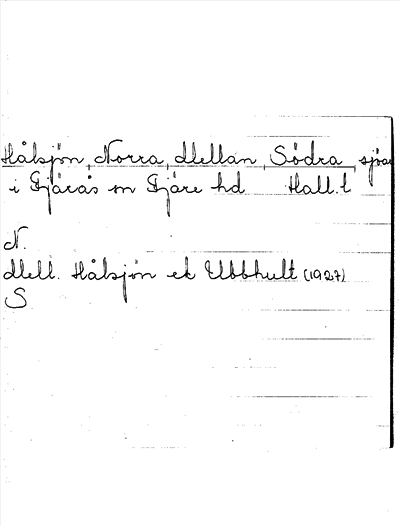 Hålsjön, Norra, Mellan, Södra, sjöar
i Fjärås sn Fjäre hd Hall. l
N.
Mell. Hålsjön ek Ubbhult (1927)
S